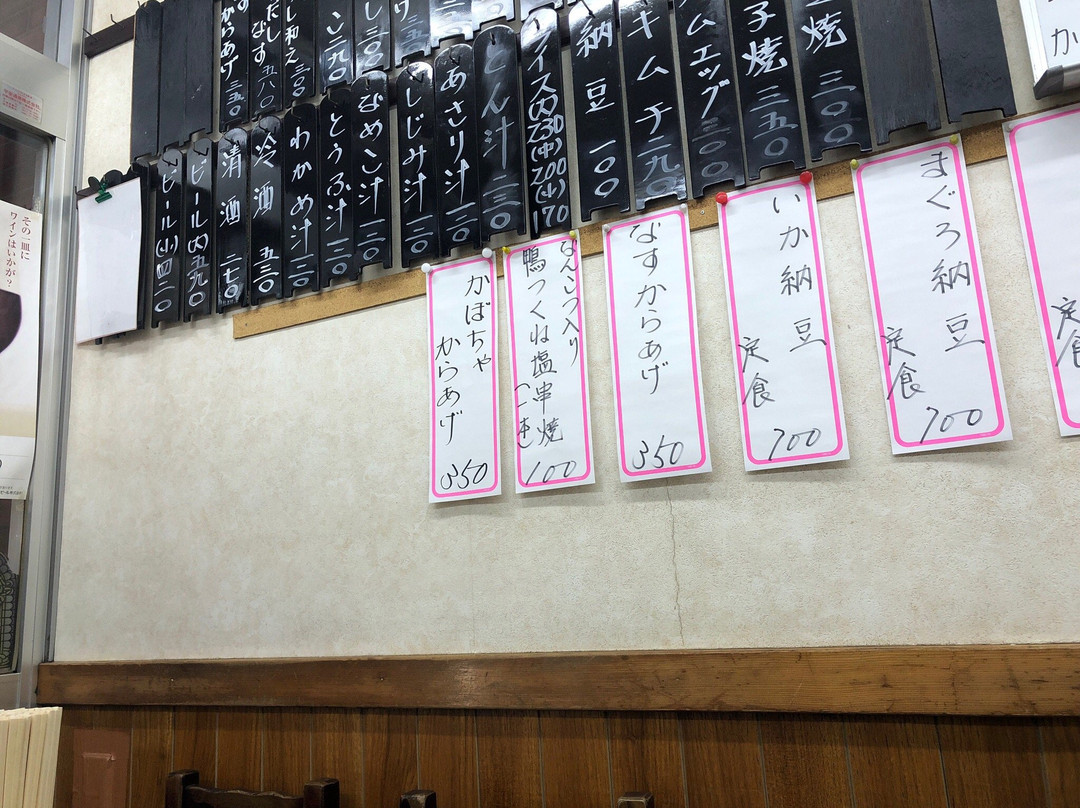 焼 三〇〇
子焼 三五〇
ムエッグ 三〇〇
キムチ 二九〇
納豆 一〇〇
イス(大)230(中)200(小)170
とん汁 二三〇
あさり汁 一三〇
しじみ汁 一三〇
なめこ汁 一三〇
とうふ汁 一三〇
わかめ汁 一三〇
冷酒 五三〇
清酒 二七〇
ビール(大)五九〇
ビール(小)四二〇
こ 二九〇
し和え 三〇〇
だしなす 五八〇
からあげ 三五〇
定食
まぐろ納豆
定食
700
いか納豆
定食
700
なすからあげ
350
なんこつ入り
鴨つくね塩串焼
(一本)
100
かぼちゃ
からあげ
350
その一皿に
ワインはいかが?
か